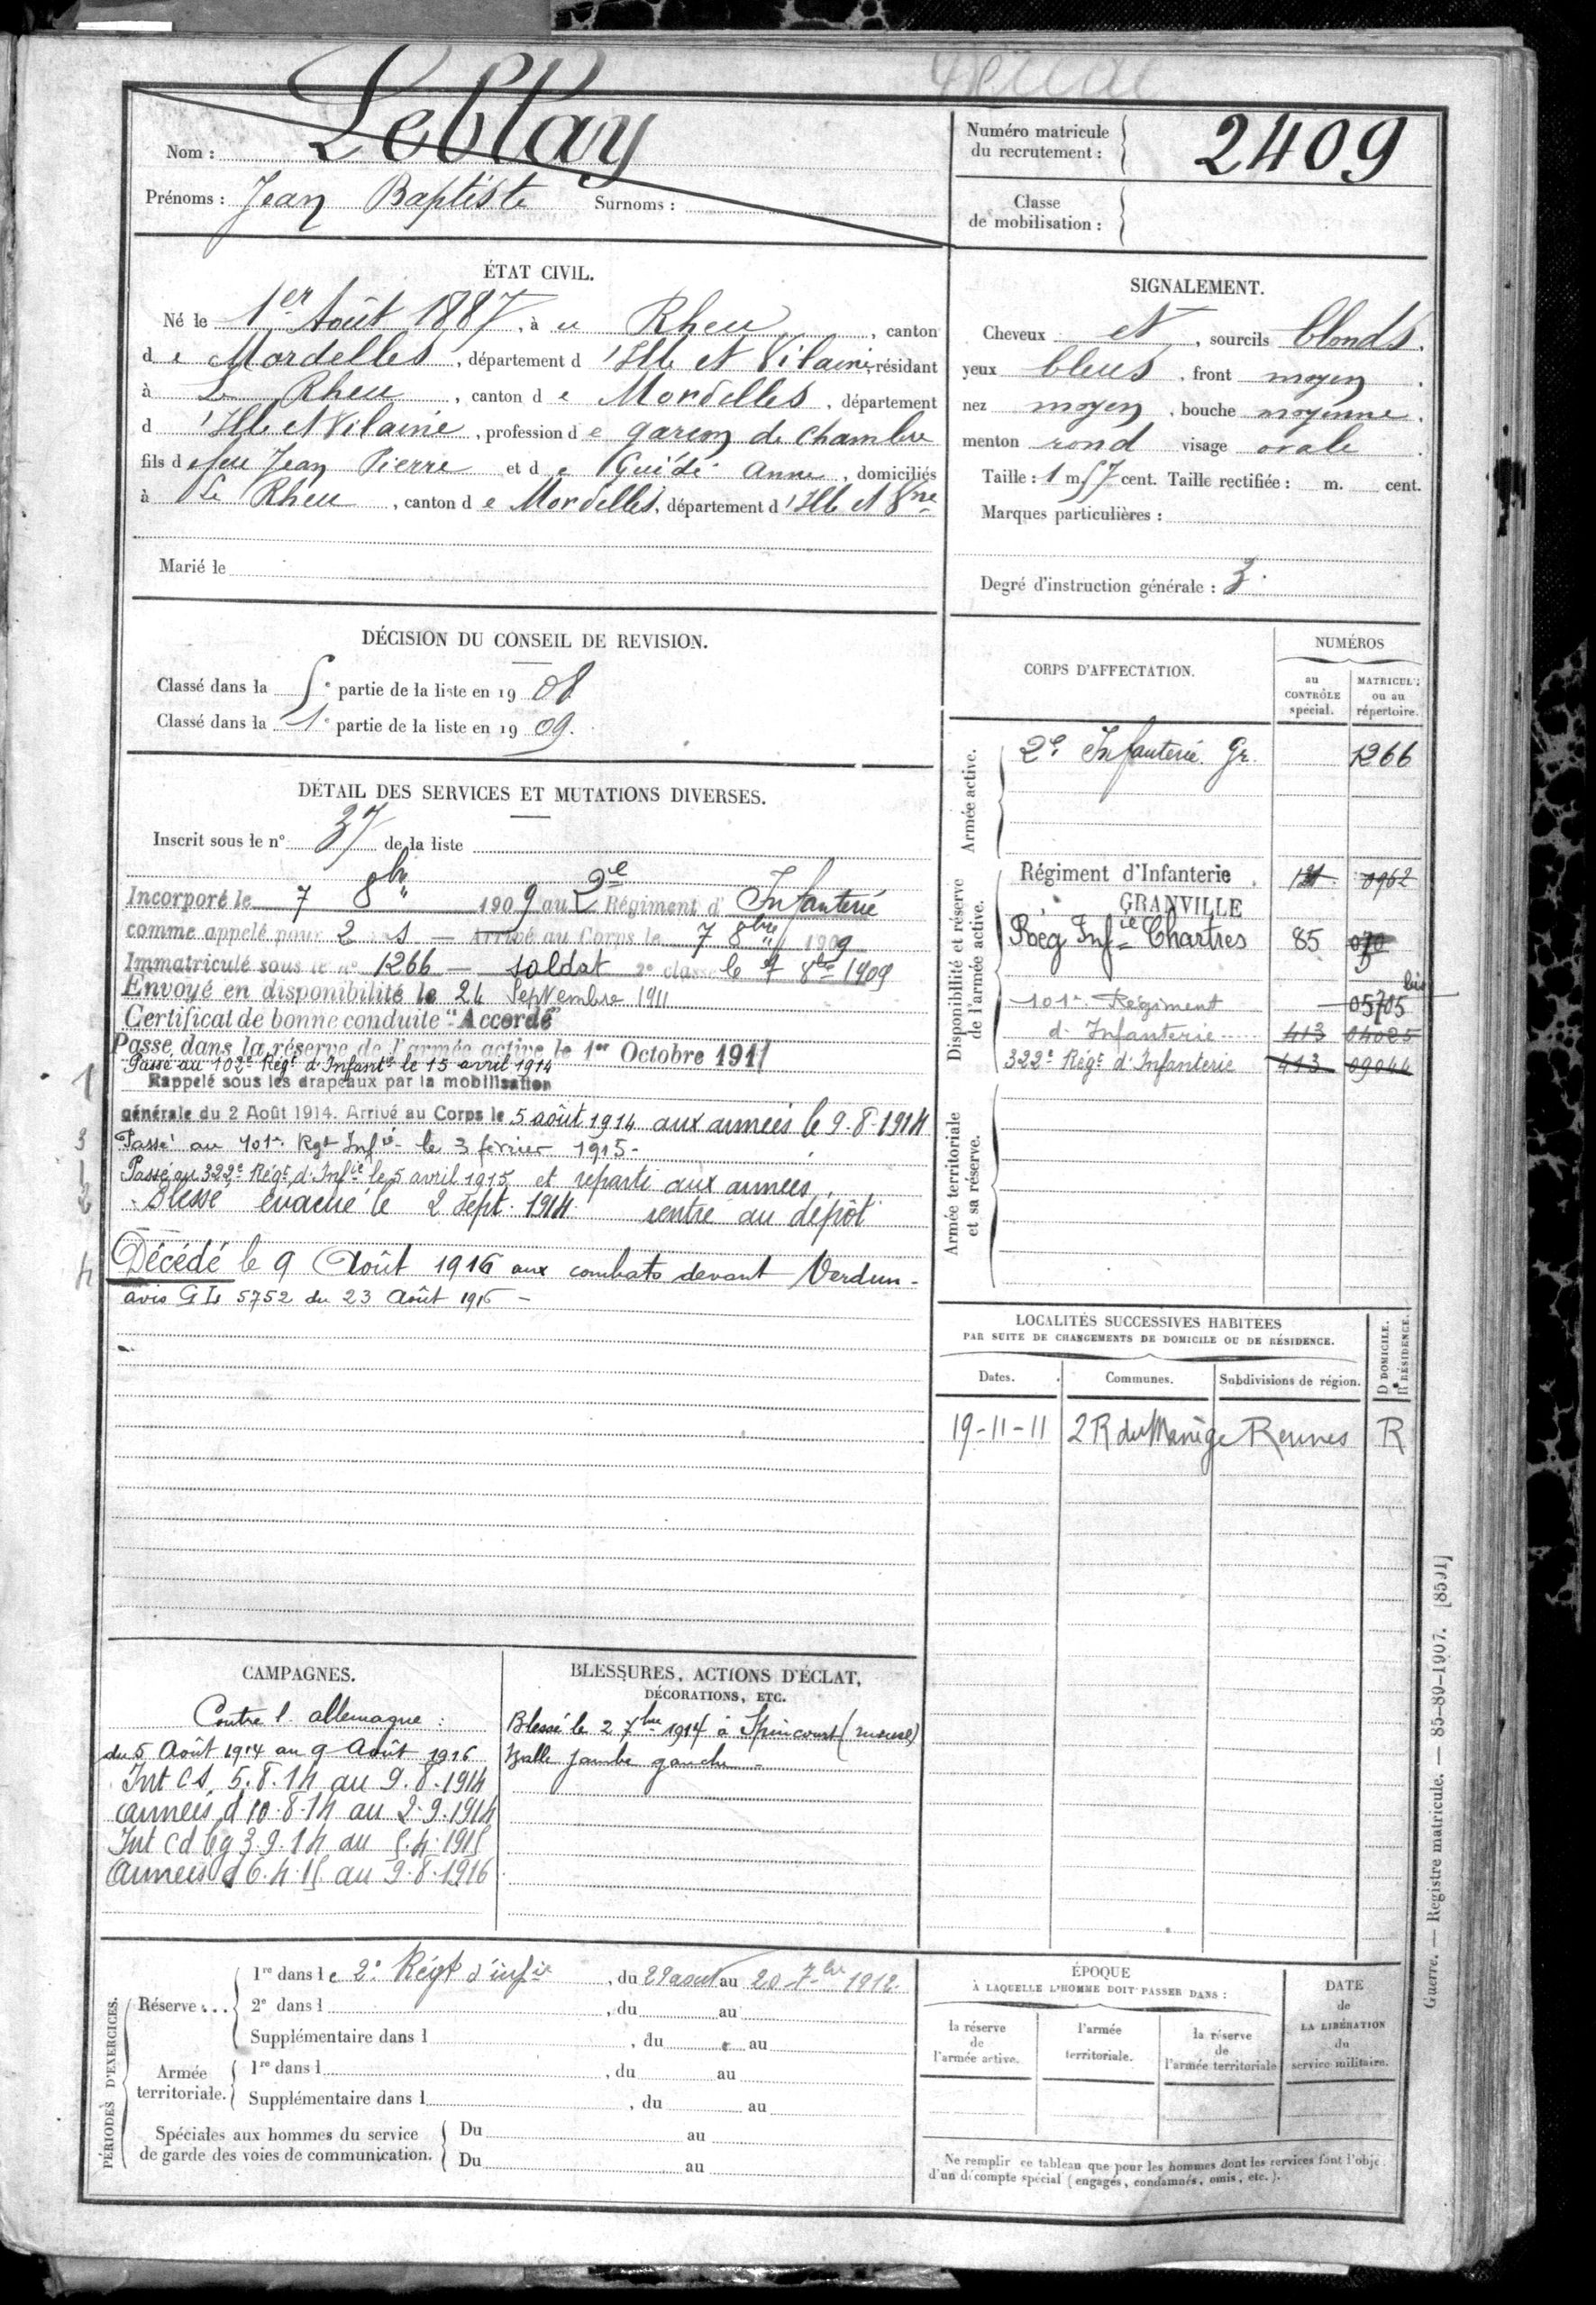 Nom : Leblay
Prénoms : Jean Baptiste Surnoms :
Numéro matricule
du recrutement : 2409
Classe
de mobilisation :
ÉTAT CIVIL.
Né le 1er Août 1887, à Le Rheu, canton
de Mordelles, département d'Ille et Vilaine, résidant
à Le Rheu, canton de Mordelles, département
d'Ille et Vilaine, profession de garçon de chambre
fils de feu Jean Pierre et de Guidé Anne, domiciliés
à Le Rheu, canton de Mordelles, département d'Ille et Vne
Marié le
SIGNALEMENT.
Cheveux et, sourcils blonds.
yeux bleus, front moyen.
nez moyen, bouche moyenne.
menton rond visage ovale.
Taille : 1 m. 57 cent. Taille rectifiée : m. cent.
Marques particulières :
Degré d'instruction générale : 3.
DÉCISION DU CONSEIL DE REVISION.
Classé dans la 5e partie de la liste en 1908
Classé dans la 1e partie de la liste en 1909.
DÉTAIL DES SERVICES ET MUTATIONS DIVERSES.
Inscrit sous le n° 37 de la liste
Incorporé le 7 8bre 1909 au 2e Régiment d'Infanterie
comme appelé pour 2 ans — Arrivé au Corps le 7 8bre 1909
Immatriculé sous le n° 1266 — soldat 2e classe le 7 8bre 1909
Envoyé en disponibilité le 24 Septembre 1911
Certificat de bonne conduite "Accordé"
Passé dans la réserve de l'armée active le 1er Octobre 1911
Passé au 102e Régt d'Infantie le 15 avril 1914
1 Rappelé sous les drapeaux par la mobilisation
générale du 2 Août 1914. Arrivé au Corps le 5 août 1914 aux armées le 9.8.1914
3 Passé au 101e Rgt Infie le 3 février 1915-
Passé au 322e Régt d'Infie le 5 avril 1915 et reparti aux armées.
2 Blessé évacué le 2 Sept. 1914 rentré au dépôt
4 Décédé le 9 Août 1916 aux combats devant Verdun -
avis GL 5752 du 23 Août 1916 -
CORPS D'AFFECTATION.
NUMÉROS
au CONTRÔLE spécial.
MATRICULE ou au répertoire.
Armée active.
2e Infanterie Gr. 1266
Disponibilité et réserve de l'armée active.
Régiment d'Infanterie 0962
GRANVILLE
Rég Infie Chartres 85 070
bis
101e Régiment 05705
d'Infanterie 413 04025
322e Régt d'Infanterie 413 09044
Armée territoriale et sa réserve.
LOCALITÉS SUCCESSIVES HABITÉES
PAR SUITE DE CHANGEMENTS DE DOMICILE OU DE RÉSIDENCE.
Dates. Communes. Subdivisions de région. D DOMICILE. R RÉSIDENCE.
19-11-11 2 R du Manège Rennes R
CAMPAGNES.
Contre l'allemagne :
du 5 Août 1914 au 9 Août 1916
Int CS, 5.8.14 au 9.8.1914
armées d 10.8.14 au 2.9.1914
Int Cd bg 3.9.14 au 5.4.1915
armées d 6.4.15 au 9.8.1916
BLESSURES, ACTIONS D'ÉCLAT,
DÉCORATIONS, ETC.
Blessé le 2 7bre 1914 à Spincourt (meuse)
balle jambe gauche -
PÉRIODES D'EXERCICES.
Réserve...
1re dans le 2e Régt d'infie, du 29 aout au 20 7bre 1912.
2e dans l , du au
Supplémentaire dans l , du au
Armée territoriale.
1re dans l , du au
Supplémentaire dans l , du au
Spéciales aux hommes du service
de garde des voies de communication.
Du au
Du au
ÉPOQUE
À LAQUELLE L'HOMME DOIT PASSER DANS :
la réserve de l'armée active.
l'armée territoriale.
la réserve de l'armée territoriale
DATE de LA LIBÉRATION du service militaire.
Ne remplir ce tableau que pour les hommes dont les services font l'objet
d'un décompte spécial (engagés, condamnés, omis, etc.).
Guerre. — Registre matricule. — 85-89-1907. [8591]